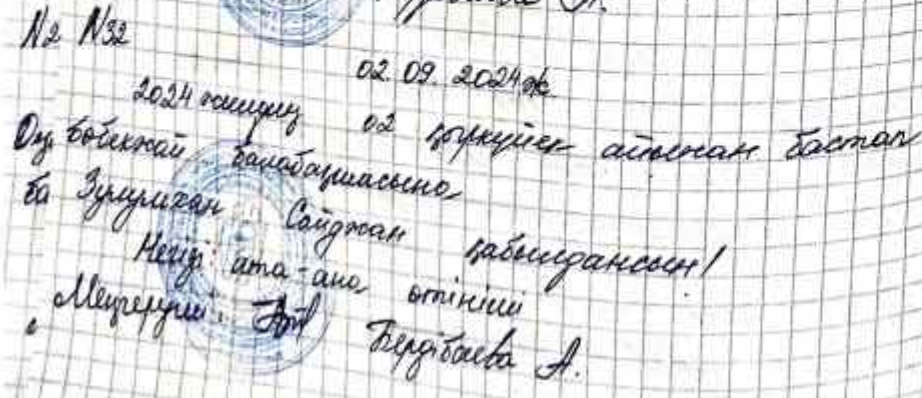 А.
№2 №32
02.09.2024ж
2024 жылдың 02 қыркүйек айынан бастап
бөбекжай балабақшасына
ба Зулумхан Сайджан қабылдансын!
Негізі: ата-ана өтініші
Меңгеруші: Бердібаева А.